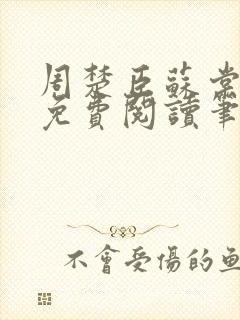 周楚臣蘇棠
免費閱讀筆
不會受傷的魚